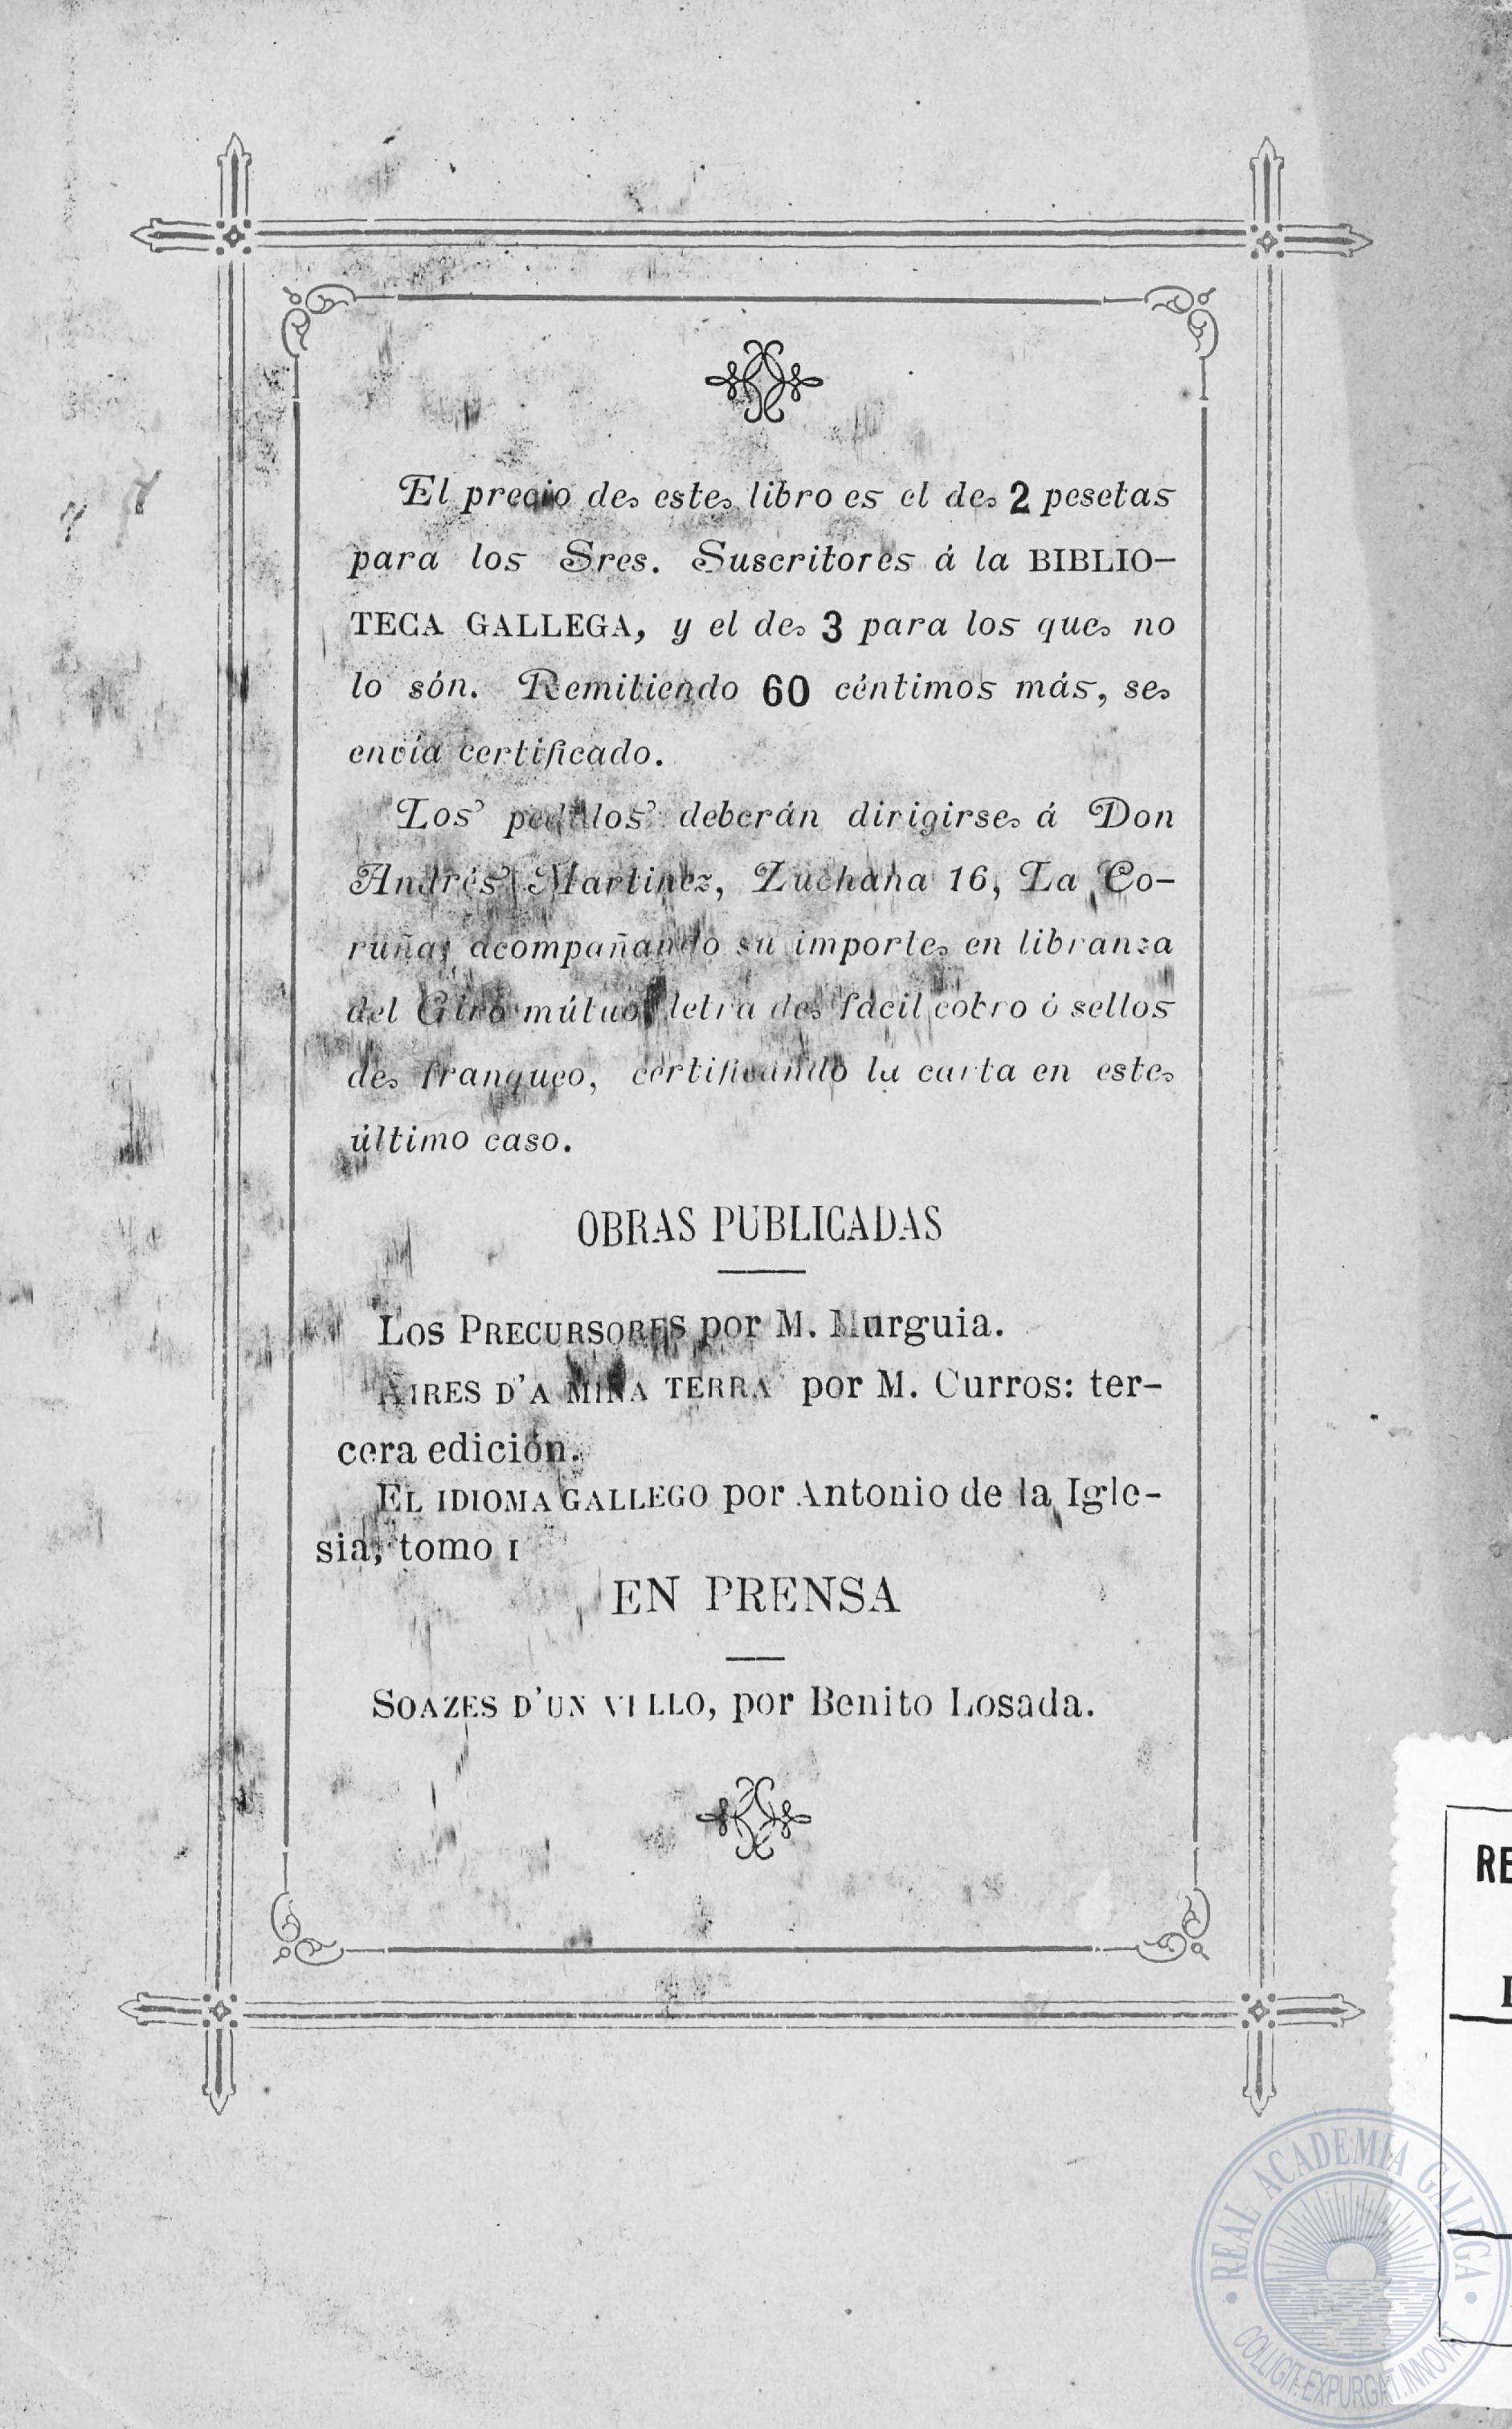 El precio de este libro es el de 2 pesetas
para los Sres. Suscritores á la BIBLIO-
TECA GALLEGA, y el de 3 para los que no
lo són. Remitiendo 60 céntimos más, se
envía certificado.
Los pedidos deberán dirigirse á Don
Andrés Martinez, Luchana 16, La Co-
ruña, acompañando su importe en libranza
del Giro mútuo, letra de fácil cobro ó sellos
de franqueo, certificando la carta en este
último caso.
OBRAS PUBLICADAS
LOS PRECURSORES por M. Murguia.
AIRES D'A MIÑA TERRA por M. Curros: ter-
cera edición.
EL IDIOMA GALLEGO por Antonio de la Igle-
sia, tomo I
EN PRENSA
SOAZES D'UN VELLO, por Benito Losada.
RE
REAL ACADEMIA GALEGA
COLLIGIT.EXPURGAT.INNOVAT